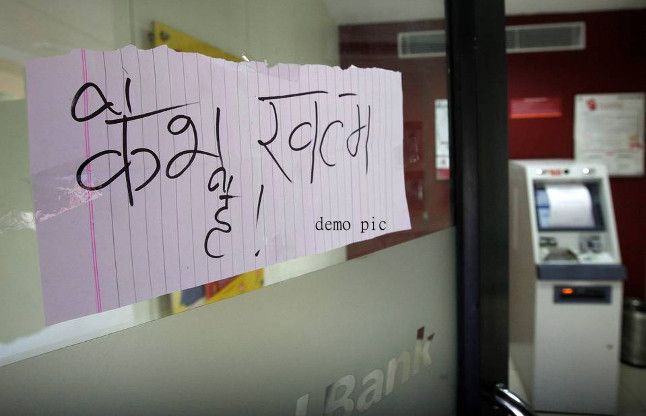 कैश खत्म
है !
demo pic
Bank